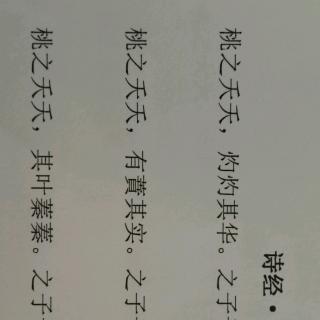 诗经·
桃之夭夭，灼灼其华。之子
桃之夭夭，有蕡其实。之子
桃之夭夭，其叶蓁蓁。之子